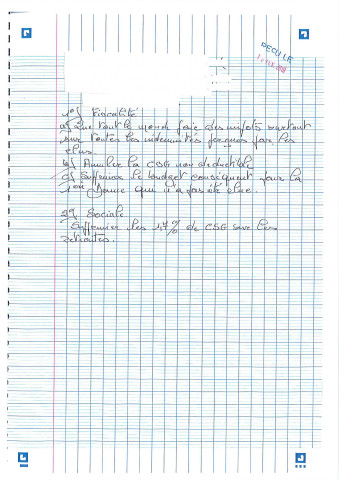 REÇU LE
1°) Fiscalité
a) Que tout le monde paie des impôts surtout
sur toutes les indemnités perçues par les
élus.
b) Annuler la CSG non déductible
c) Supprimer le budget conséquent pour la
1ère Dame qui n'a pas été élue.
2°) Sociale
Supprimer les 1,7% de CSG sur les
retraites.